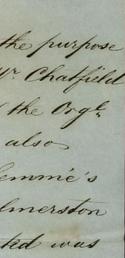 the purpose
Mr Chatfield
the Orgl
also
emmé's
lmerston
ted was